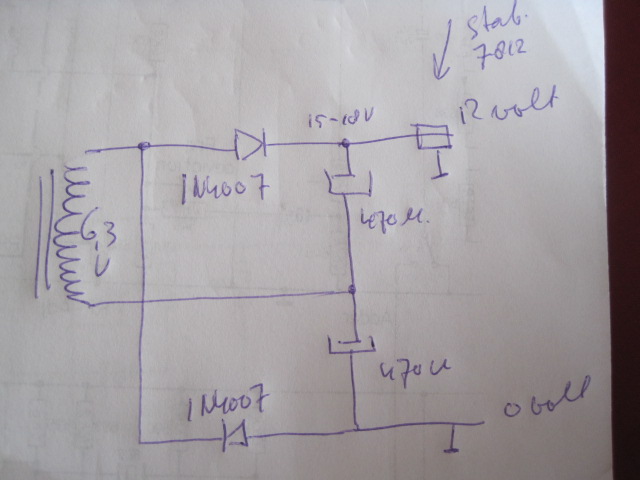 Stab.
7812
15-18V
12 volt
1N4007
470µ.
6,3
V
470µ
1N4007
0 volt